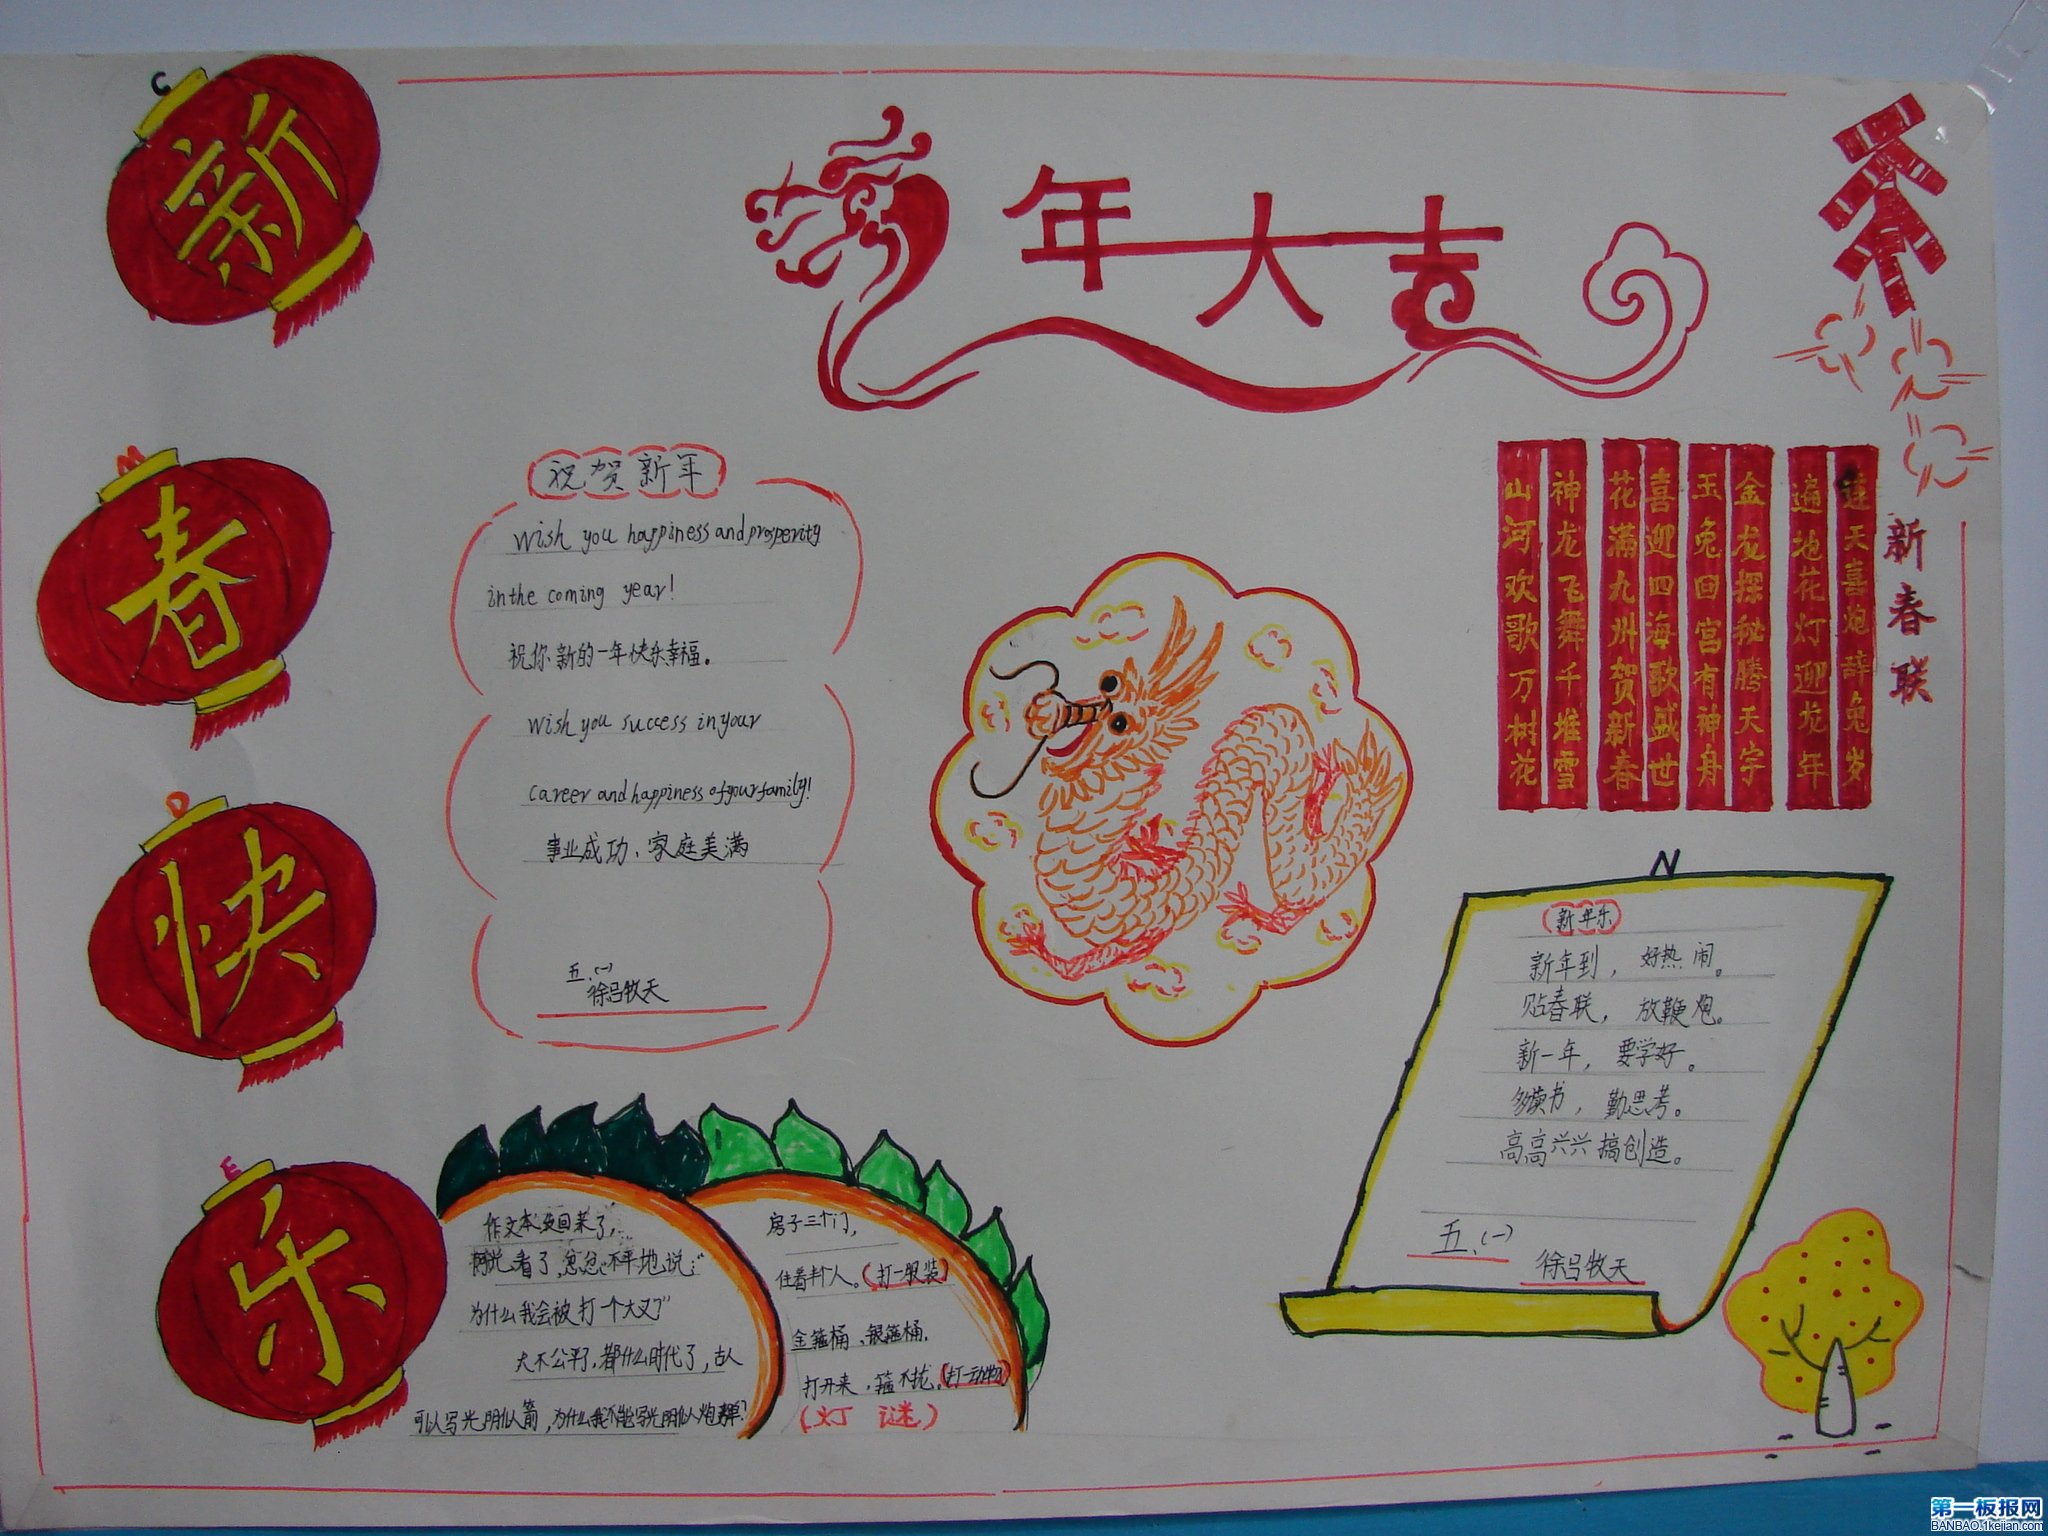 新
春
快
乐
年大吉
祝贺新年
Wish you happiness and prosperity
in the coming year!
祝你新的一年快乐幸福。
Wish you success in your
career and happiness of your family!
事业成功、家庭美满
五.(一)
徐吕牧天
新春联
连天喜炮辞兔岁
遍地花灯迎龙年
金龙探秘腾天宇
玉兔回宫有神舟
喜迎四海歌盛世
花满九州贺新春
神龙飞舞千堆雪
山河欢歌万树花
新年乐
新年到，好热闹。
贴春联，放鞭炮。
新一年，要学好。
多读书，勤思考。
高高兴兴搞创造。
五.(一)
徐吕牧天
作文本发回来了，
阿光看了，忿忿不平地说：“
为什么我会被打一个大叉”
大不公平了，都什么时代了，古人
可以写光阴似箭，为什么我不能写光阴似炮弹？
房子三个门，
住着半个人。(打一服装)
金箍桶、银箍桶，
打开来，箍不拢。(打一动物)
(灯 谜)
C
D
E
第一板报网
BANBAO.1kejian.com